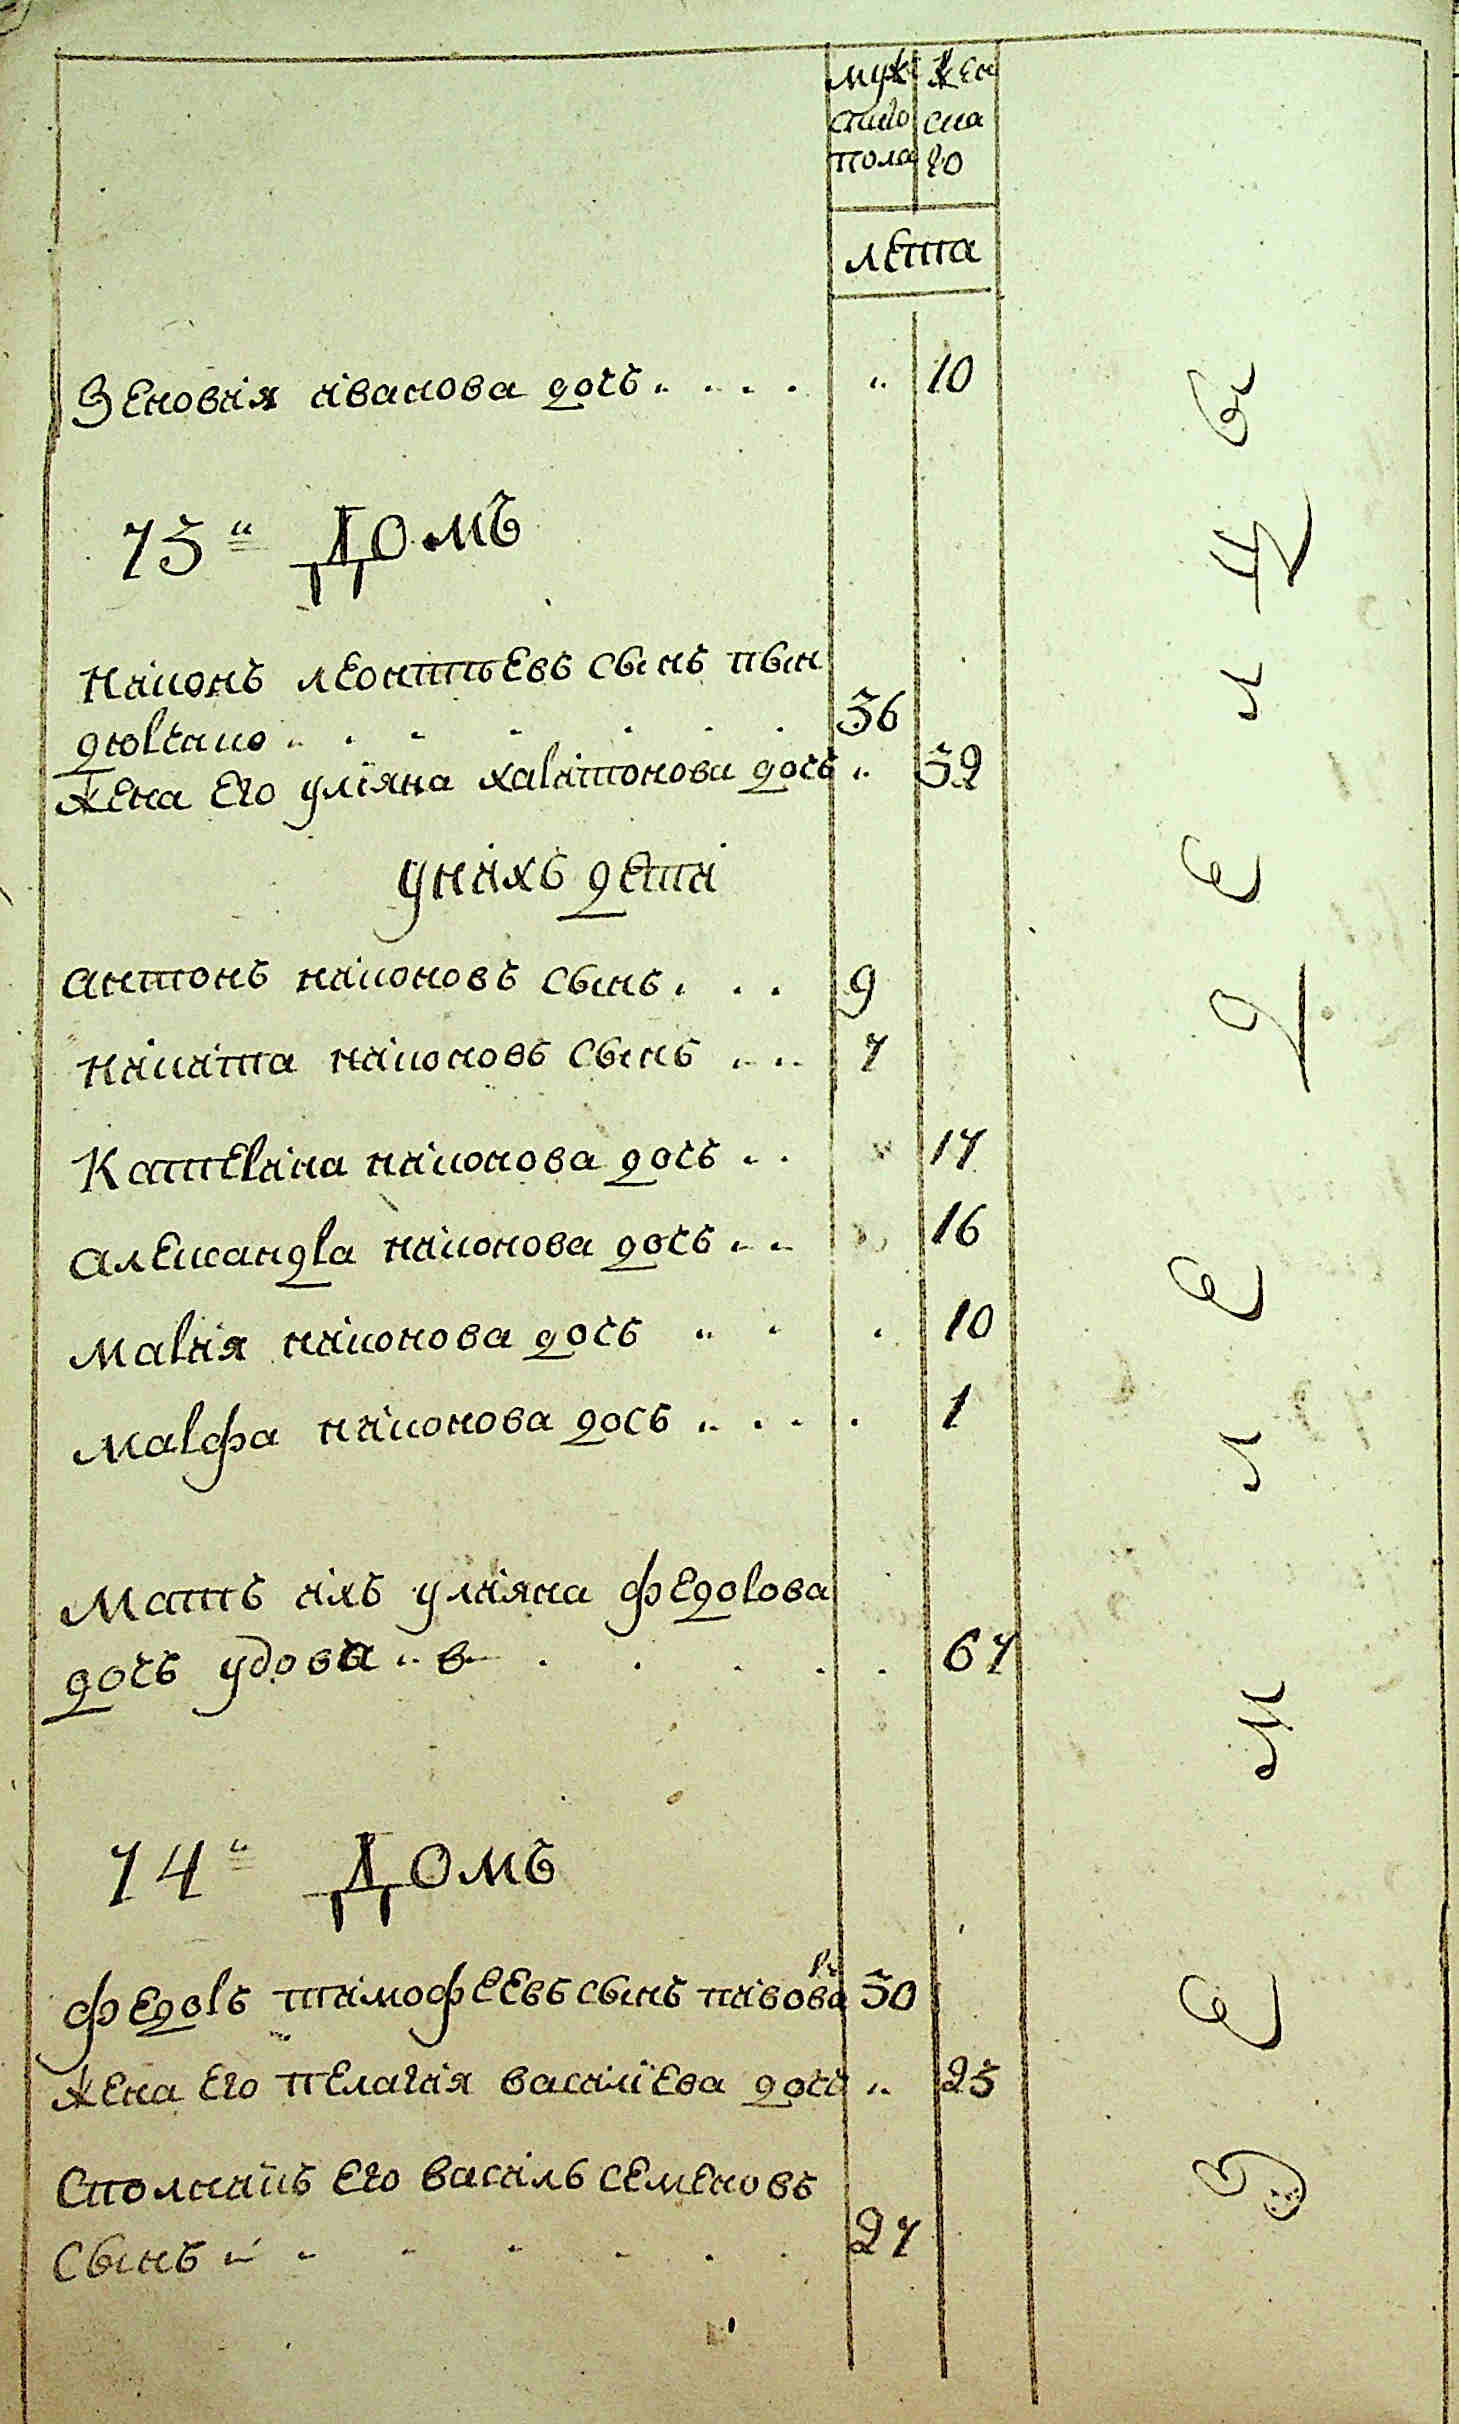 муже жен
скаго ска
пола го
лета
Зеновия иванова дочь 10
73й Домъ
никонъ леонтьевъ сынъ пын
дюрчано 36
жена его улияна харитонова дочь 32
унихъ дети
антонъ никоновъ сынъ 9
никита никоновъ сынъ 7
Катерина никонова дочь 17
александра никонова дочь 16
мария никонова дочь 10
марфа никонова дось 1
Мать ихъ улияна федорова
дочь удова 67
74й Домъ
федоръ тимофеевъ сынъ пивова 30
жена его пелагия василиева дочь 25
Сполникъ его василь семеновъ
сынъ 27
земле
делцы